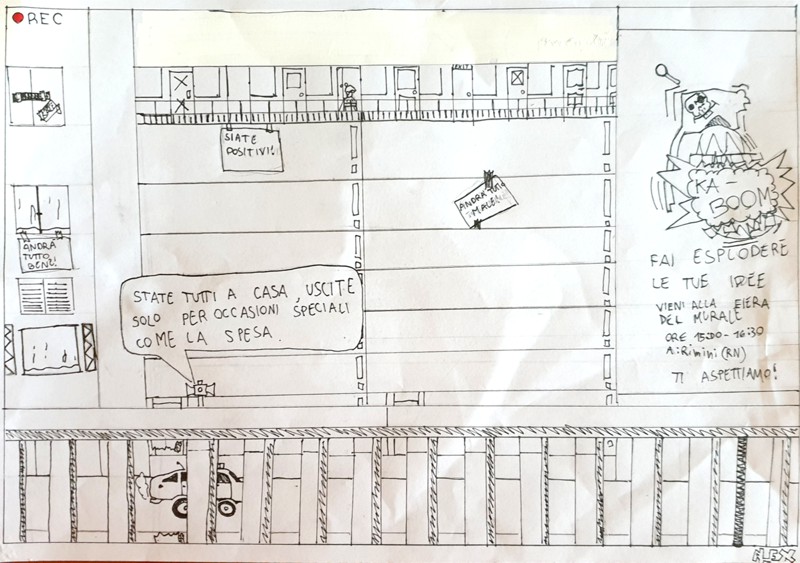 REC
SIATE
POSITIVI!
ANDRÀ TUTTO
MALE
ANDRÀ
TUTTO
BENE!
STATE TUTTI A CASA, USCITE
SOLO PER OCCASIONI SPECIALI
COME LA SPESA.
KA-
BOOM
FAI ESPLODERE
LE TUE IDEE
VIENI ALLA FIERA
DEL MURALE
ORE 15:00-16:30
A:Rimini (RN)
TI ASPETTIAMO!